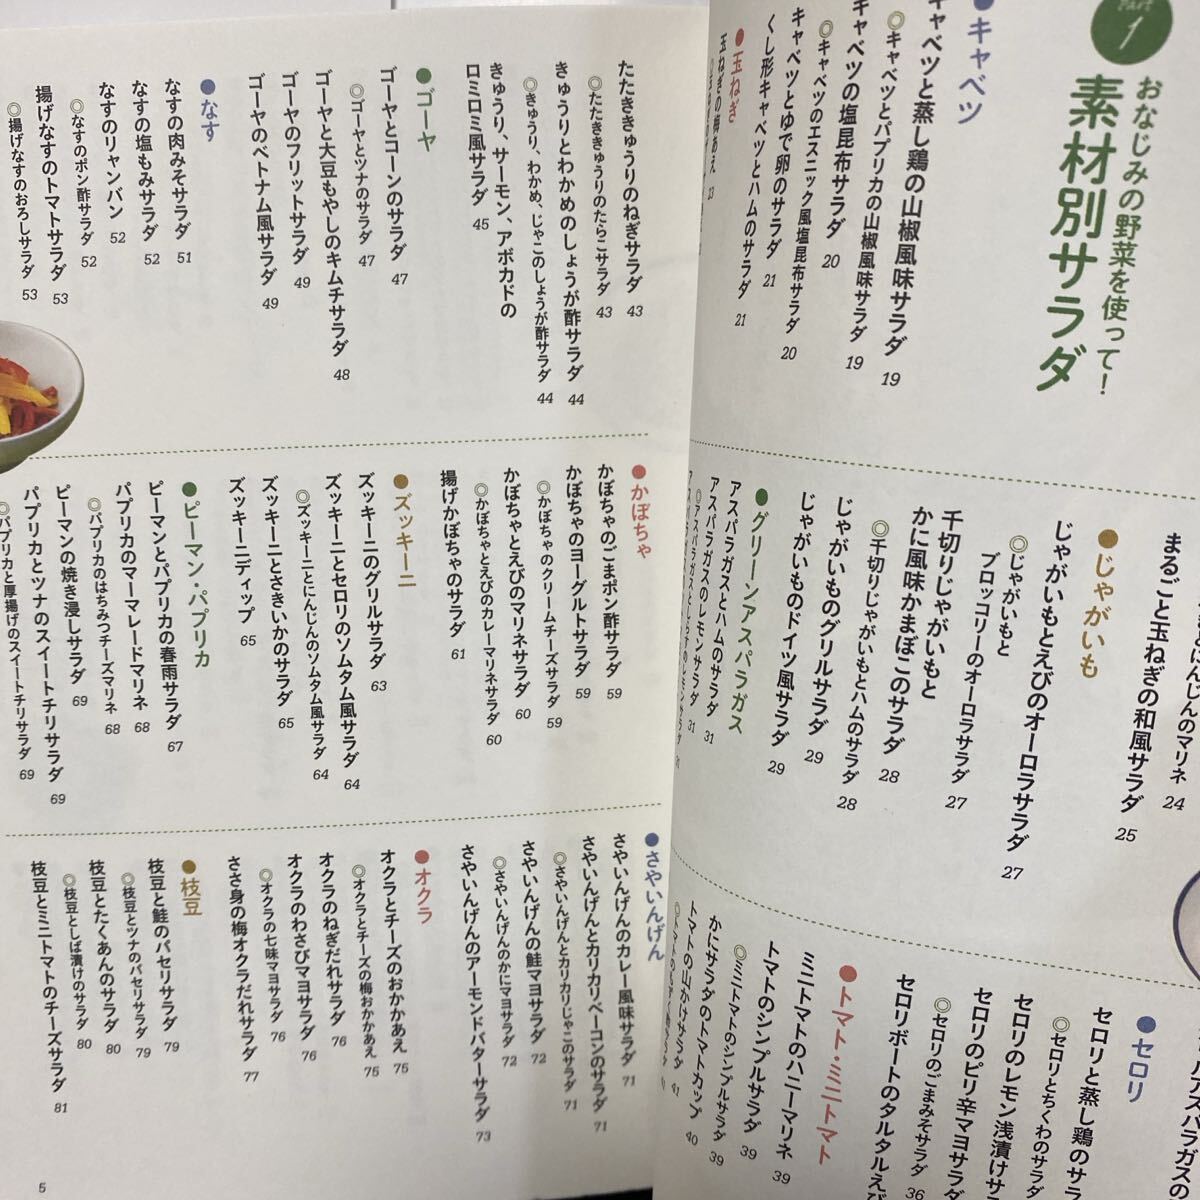 Part 1
おなじみの野菜を使って!
素材別サラダ
●キャベツ
キャベツと蒸し鶏の山椒風味サラダ 19
◎キャベツとパプリカの山椒風味サラダ 19
キャベツの塩昆布サラダ 20
◎キャベツのエスニック風塩昆布サラダ 20
キャベツとゆで卵のサラダ 21
くし形キャベツとハムのサラダ 21
●玉ねぎ
玉ねぎの梅あえ 23
まるごと玉ねぎの和風サラダ 25
にんじんのマリネ 24
●じゃがいも
じゃがいもとえびのオーロラサラダ 27
◎じゃがいもと
ブロッコリーのオーロラサラダ 27
千切りじゃがいもと
かに風味かまぼこのサラダ 28
◎千切りじゃがいもとハムのサラダ 28
じゃがいものグリルサラダ 29
じゃがいものドイツ風サラダ 29
●グリーンアスパラガス
アスパラガスとハムのサラダ 31
アスパラガスのレモンサラダ 31
◎アスパラガスとしらすのレモンサラダ 31
●セロリ
セロリと蒸し鶏のサ
◎セロリとちくわのサラダ
セロリのレモン浅漬けサ
セロリのピリ辛マヨサラダ
◎セロリのごまみそサラダ 36
セロリボートのタルタルえび
●トマト・ミニトマト
ミニトマトのハニーマリネ 39
トマトのシンプルサラダ 39
◎ミニトマトのシンプルサラダ 39
かにサラダのトマトカップ 40
トマトの山かけサラダ 41
たたききゅうりのねぎサラダ 43
◎たたききゅうりのたらこサラダ 43
きゅうりとわかめのしょうが酢サラダ 44
◎きゅうり、わかめ、じゃこのしょうが酢サラダ 44
きゅうり、サーモン、アボカドの
ロミロミ風サラダ 45
●ゴーヤ
ゴーヤとコーンのサラダ 47
◎ゴーヤとツナのサラダ 47
ゴーヤと大豆もやしのキムチサラダ 48
ゴーヤのフリットサラダ 49
ゴーヤのベトナム風サラダ 49
●なす
なすの肉みそサラダ 51
なすの塩もみサラダ 52
なすのリャンバン 52
◎なすのポン酢サラダ 52
揚げなすのトマトサラダ 53
◎揚げなすのおろしサラダ 53
●かぼちゃ
かぼちゃのごまポン酢サラダ 59
かぼちゃのヨーグルトサラダ 59
◎かぼちゃのクリームチーズサラダ 59
かぼちゃとえびのマリネサラダ 60
◎かぼちゃとえびのカレーマリネサラダ 60
揚げかぼちゃのサラダ 61
●ズッキーニ
ズッキーニのグリルサラダ 63
ズッキーニとセロリのソムタム風サラダ 64
◎ズッキーニとにんじんのソムタム風サラダ 64
ズッキーニとさきいかのサラダ 65
ズッキーニディップ 65
●ピーマン・パプリカ
ピーマンとパプリカの春雨サラダ 67
パプリカのマーマレードマリネ 68
◎パプリカのはちみつチーズマリネ 68
ピーマンの焼き浸しサラダ 69
パプリカとツナのスイートチリサラダ 69
◎パプリカと厚揚げのスイートチリサラダ 69
●さやいんげん
さやいんげんのカレー風味サラダ 71
さやいんげんとカリカリベーコンのサラダ 71
◎さやいんげんとカリカリじゃこのサラダ 71
さやいんげんの鮭マヨサラダ 72
◎さやいんげんのかにマヨサラダ 72
さやいんげんのアーモンドバターサラダ 73
●オクラ
オクラとチーズのおかかあえ 75
◎オクラとチーズの梅おかかあえ 75
オクラのねぎだれサラダ 76
オクラのわさびマヨサラダ 76
◎オクラの七味マヨサラダ 76
ささ身の梅オクラだれサラダ 77
●枝豆
枝豆と鮭のパセリサラダ 79
◎枝豆とツナのパセリサラダ 79
枝豆とたくあんのサラダ 80
◎枝豆としば漬けのサラダ 80
枝豆とミニトマトのチーズサラダ 81
5